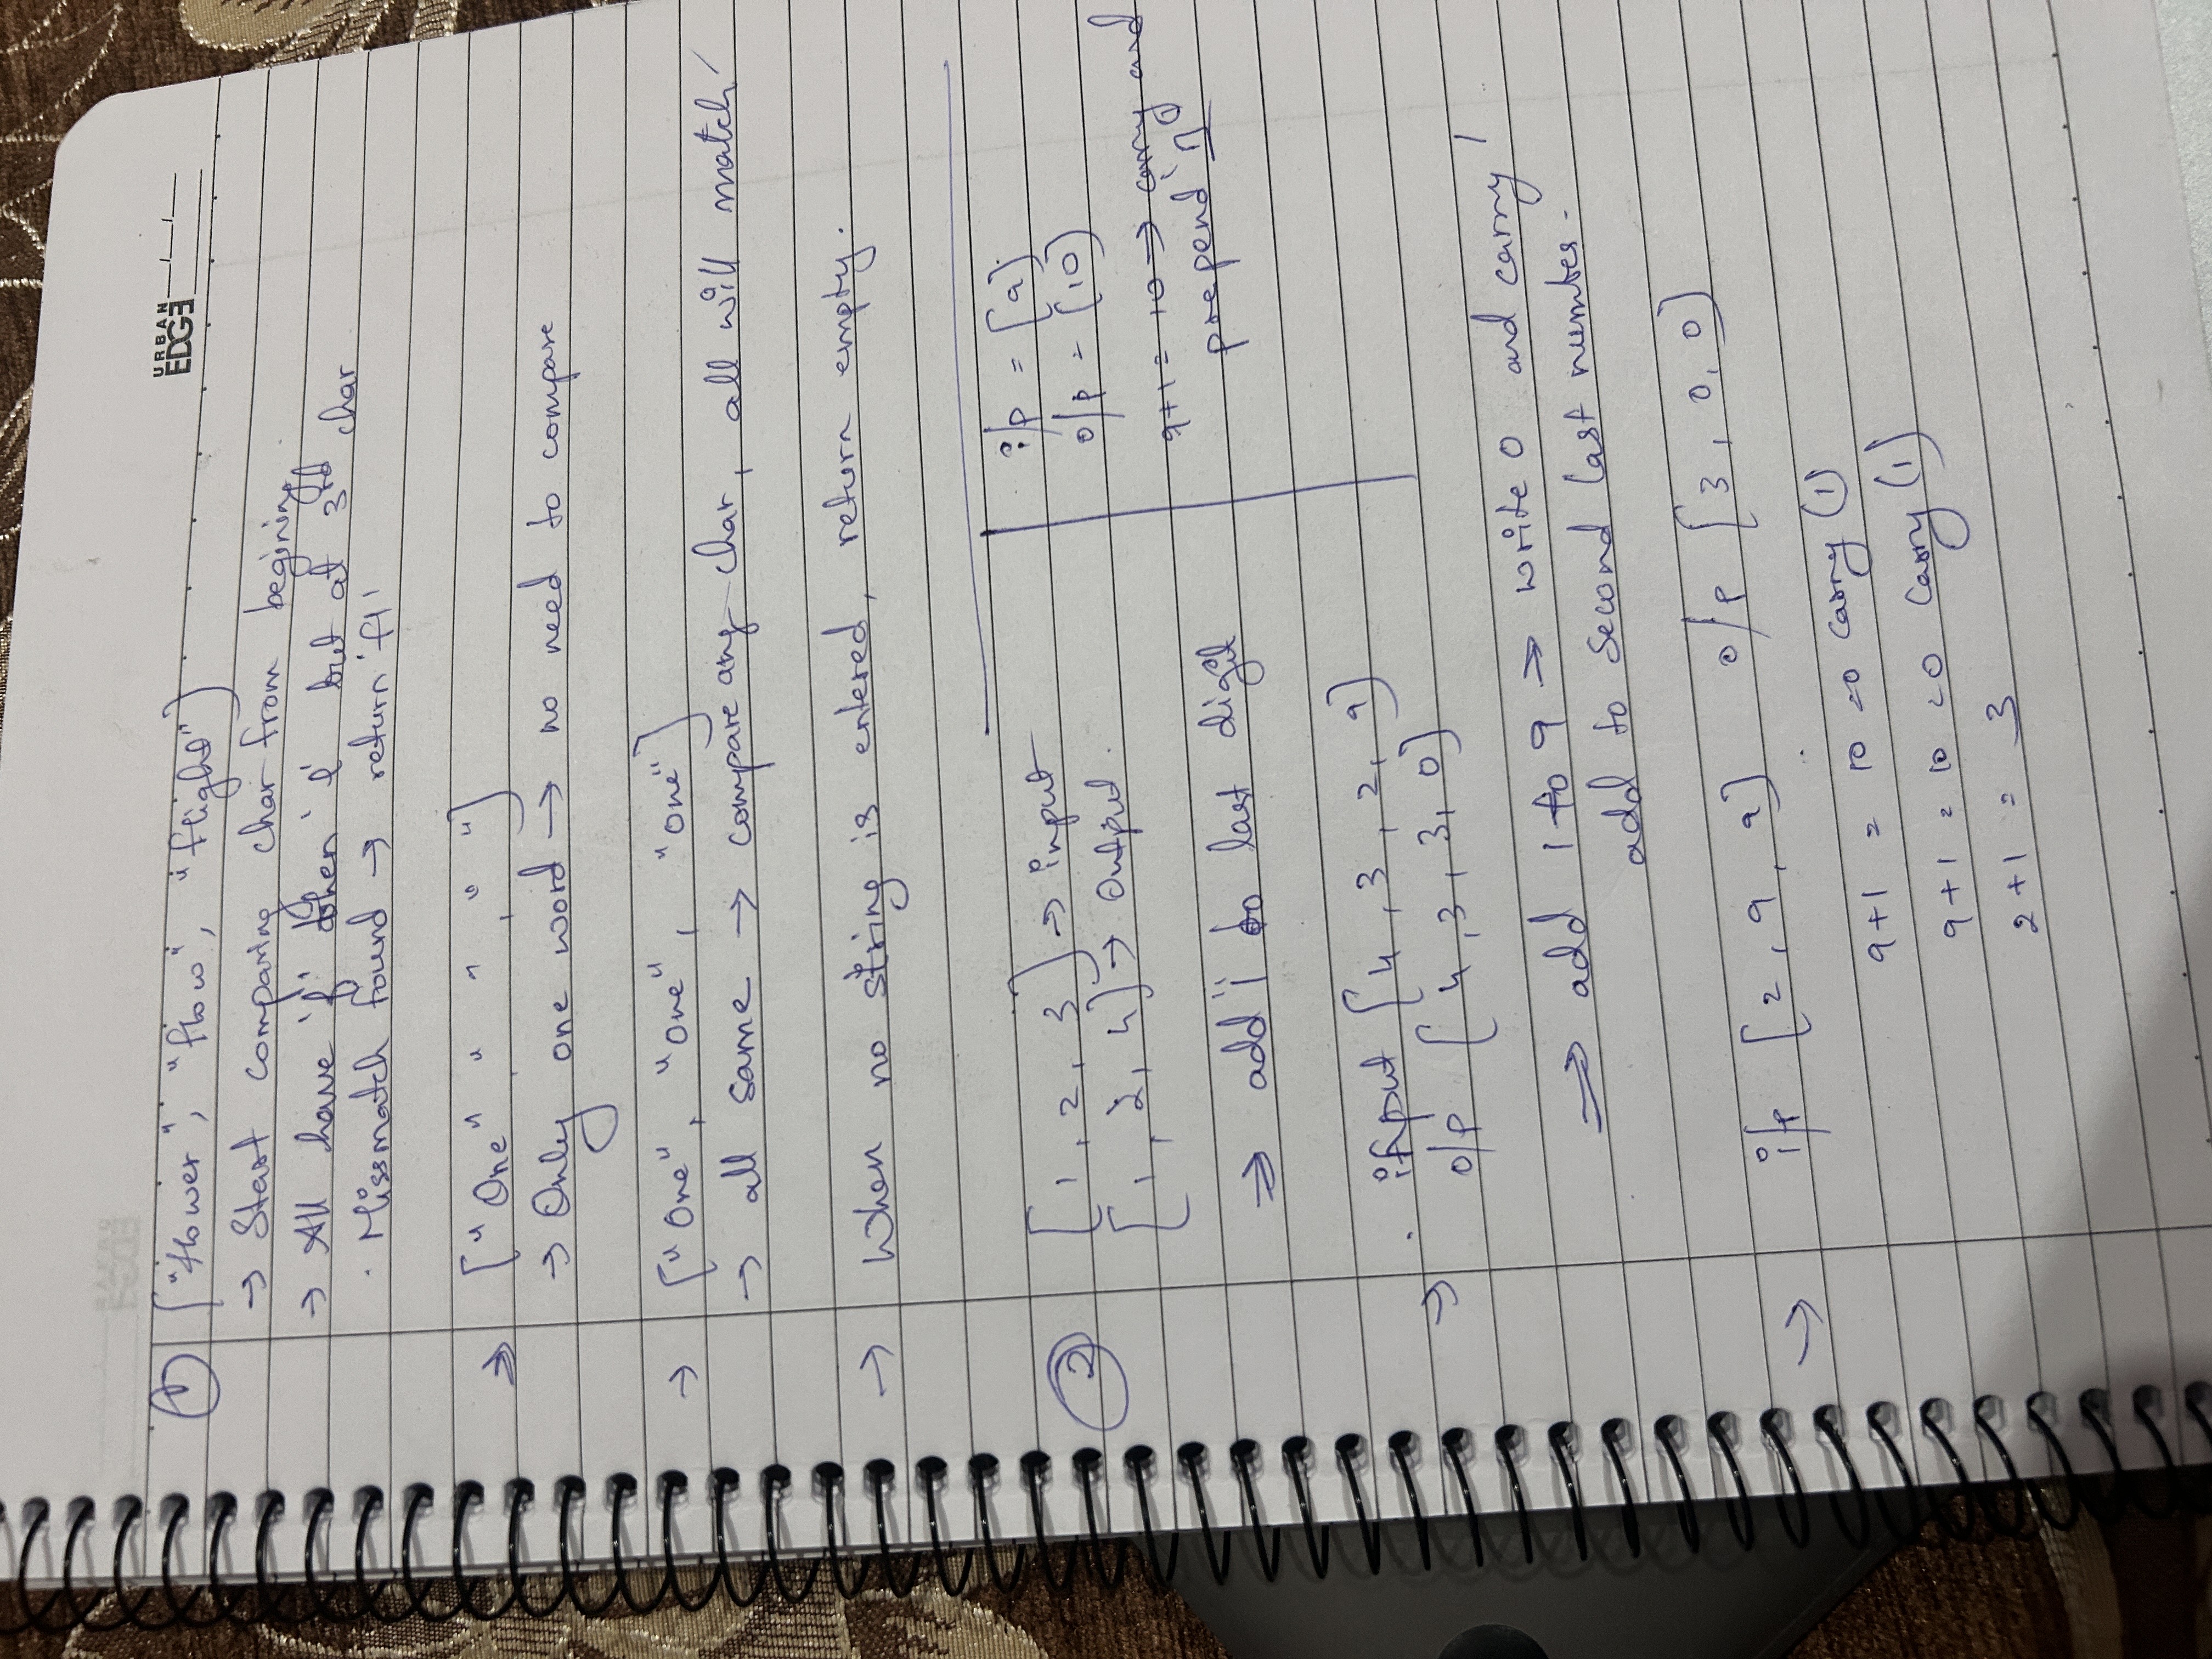 URBAN
EDGE
① ["flower", "flow", "flight"]
→ Start comparing char from begining.
→ All have 'f' then 'l' but at 3rd char
Missmatch found → return 'fl'
⇒ ["One", " ", " "]
→ Only one word → no need to compare
→ ["One", "One", "One"]
→ all same → compare any char, all will match
→ When no string is entered, return empty.
② [1, 2, 3] → input
[1, 2, 4] → Output.
⇒ add '1' to last digit
i/p = [9]
o/p = [10]
9+1 = 10 → carry and
prepend '1'
→ input [4, 3, 2, 9]
o/p [4, 3, 3, 0]
⇒ add 1 to 9 → write 0 and carry 1
add to second last number.
→ i/p [2, 9, 9] o/p [3, 0, 0]
9+1 = 10 = 0 carry (1)
9+1 = 10 = 0 carry (1)
2+1 = 3